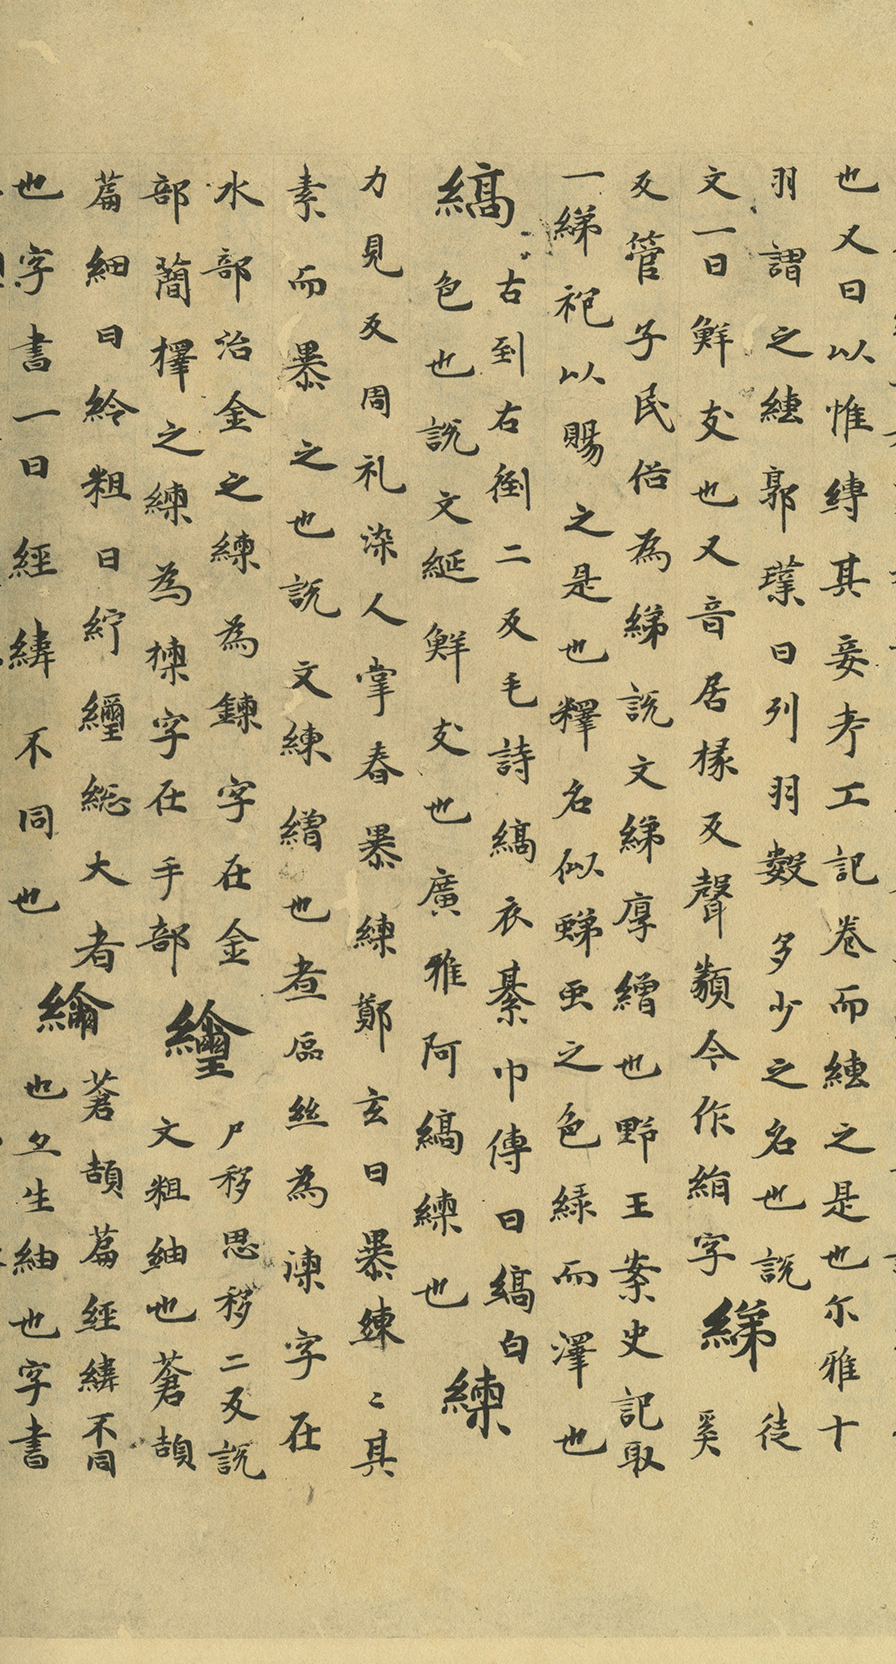 也又曰以惟縳其妾考工記卷而縳之是也尔雅十
羽謂之縳郭璞曰列羽數多少之名也說
文一曰鮮支也又音居椽反聲類今作絹字綈徒奚
反管子民俗為綈說文綈厚繒也野王案史記取
一綈袍以賜之是也釋名似蝭虫之色緑而澤也
縞古到古倒二反毛詩縞衣綦巾傳曰縞白
色也說文綖鮮支也廣雅阿縞練也練
力見反周礼染人掌春暴練鄭玄曰暴練〻其
素而暴之也說文練繒也煮絲為湅字在
水部治金之練為鍊字在金
部蕳擇之練為楝字在手部纚尸移思移二反說
文粗紬也蒼頡
篇細曰紟粗曰紵總大者蒼頡篇經緯不同
也字書一曰經緯不同也綸也生紬也字書